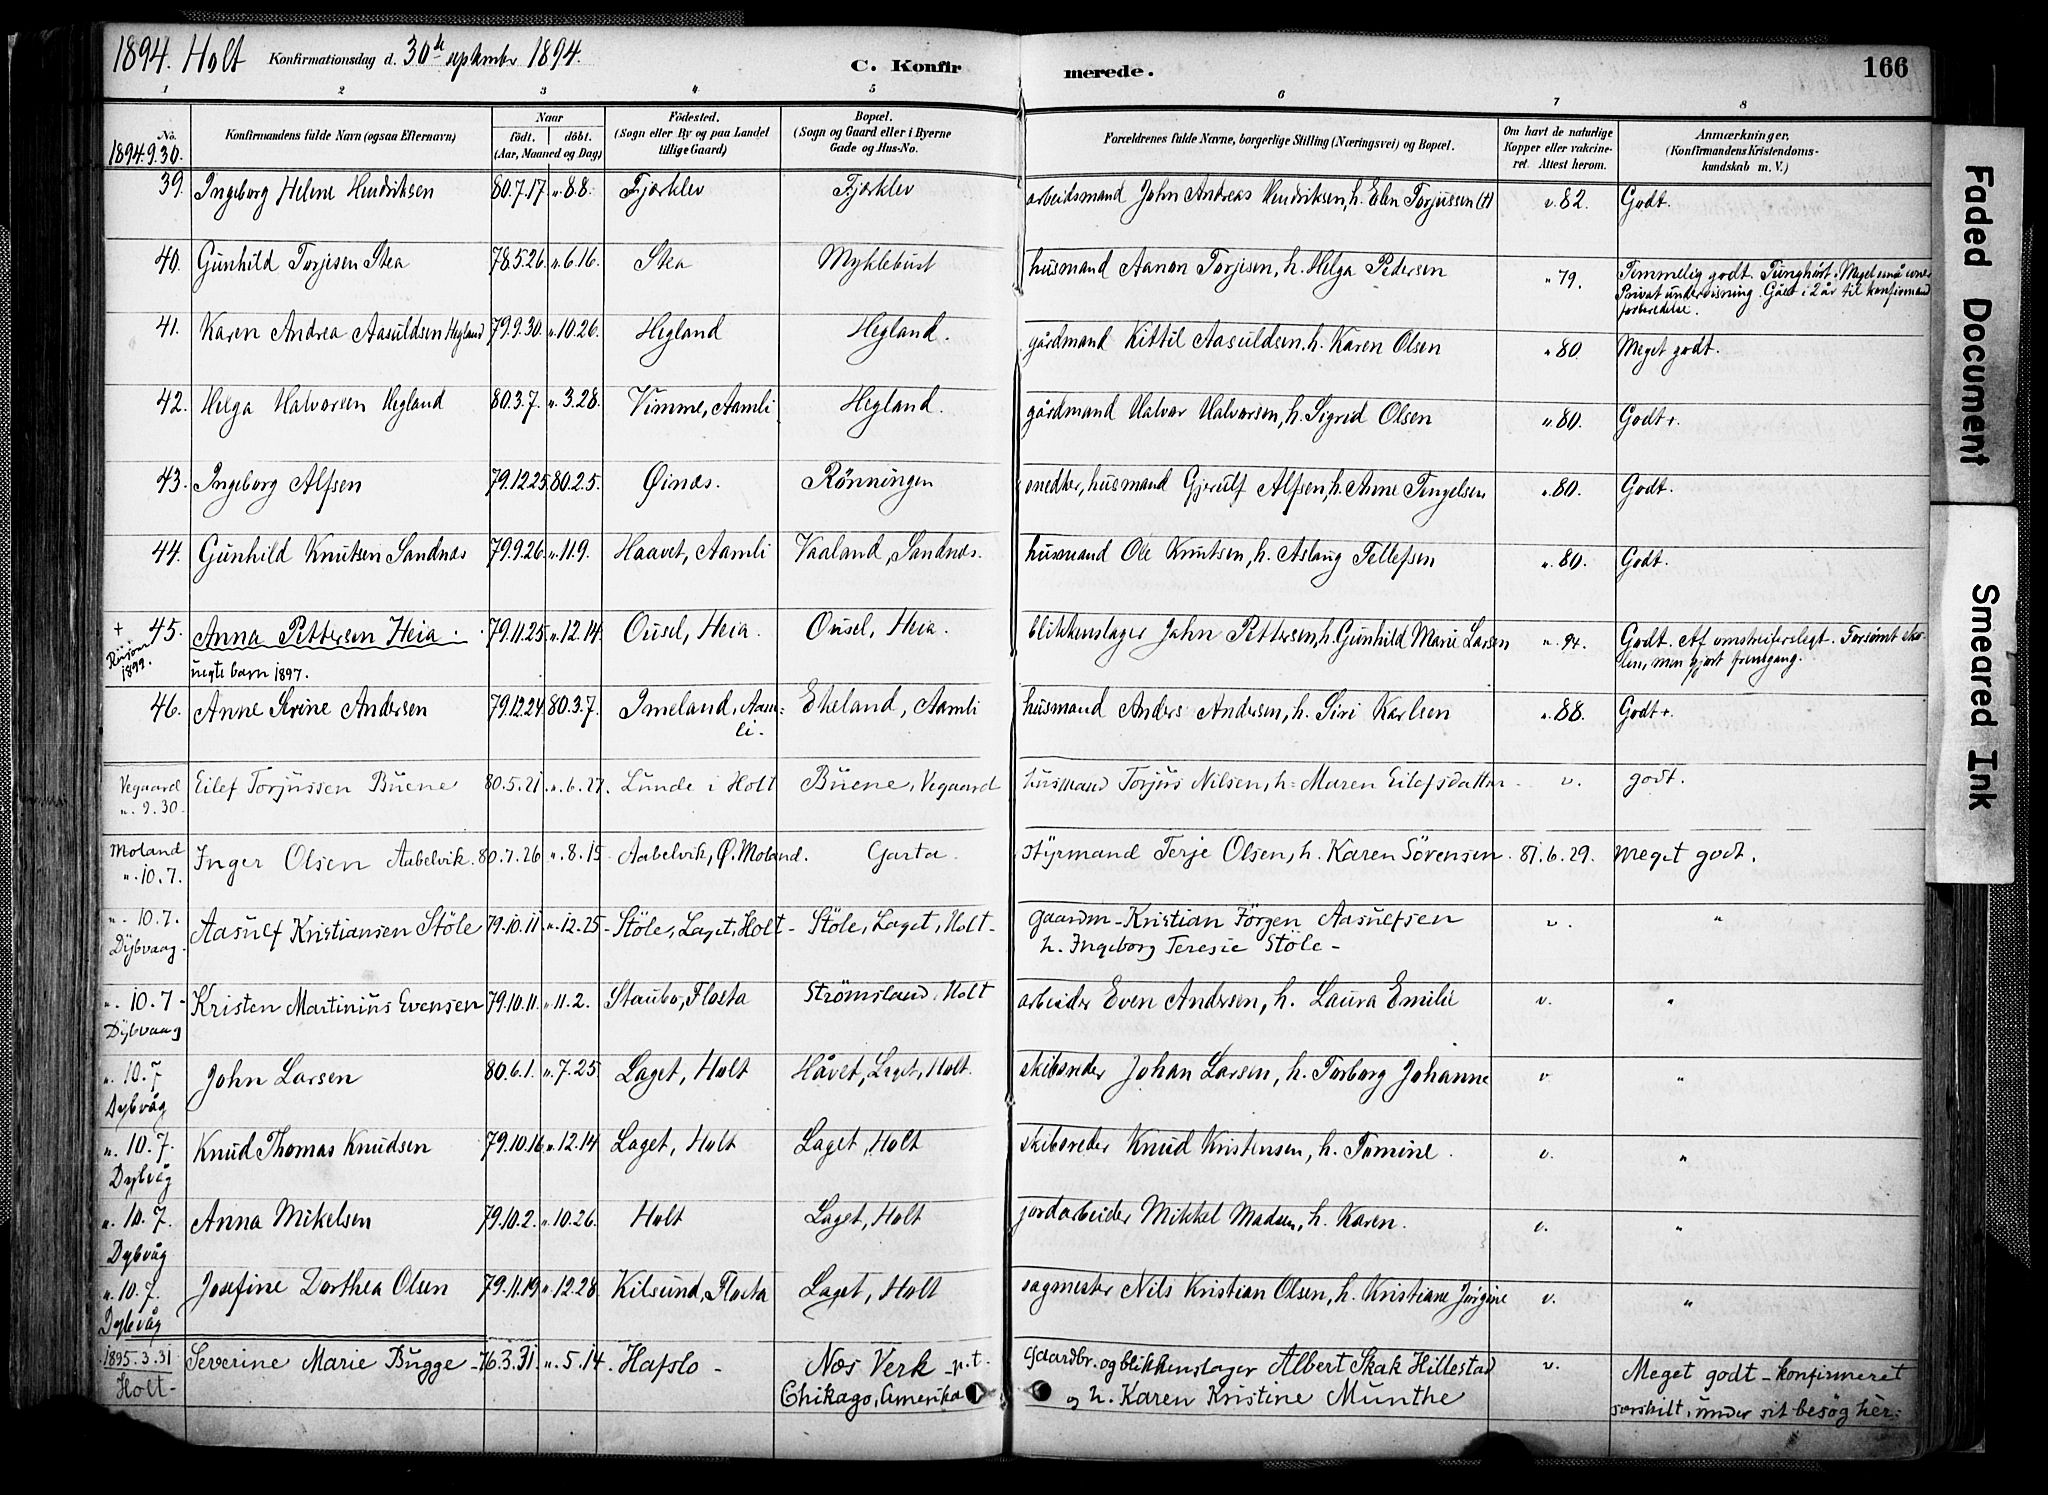 1894. Holt Konfirmationsdag d. 30de september 1894. C. Konfirmerede. 166
1 2 3 4 5 6 7 8
No. Konfirmandens fulde Navn (ogsaa Efternavn) Naar födt. döbt. (Aar, Maaned og Dag) Födested. (Sogn eller By og paa Landet tillige Gaard) Bopæl. (Sogn og Gaard eller i Byerne Gade og Hus-No. Forældrenes fulde Navne, borgerlige Stilling (Næringsvei) og Bopæl. Om havt de naturlige Kopper eller vakcineret. Attest herom. Anmærkninger. (Konfirmandens Kristendomskundskab m. V.)
1894.9.30.
39. Ingeborg Helene Hendriksen 80.7.17 „ 8.8. Fjærklev Fjærklev arbeidsmand John Andreas Hendriksen, h. Elen Torjussen (†) v. 82. Godt.
40. Gunhild Torjisen Stea 78.5.26. „ 6.16. Stea Myklebust husmand Aanon Torjisen, h. Helga Pedersen „ 79. Temmelig godt. Tunghørt. Meget små evner
Privat undervisning. Gået i 2 år til konfirmand
forberedelse.
41. Karen Andrea Aasuldsen Hegland 79.9.30. „ 10.26. Hegland Hegland. gårdmand Kittil Aasuldsen, h. Karen Olsen „ 80. Meget godt.
42. Helga Halvorsen Hegland 80.3.7. „ 3.28. Vimme, Aamli Hegland. gårdmand Halvor Halvorsen, h. Sigrid Olsen „ 80. Godt+.
43. Ingeborg Alfsen 79.12.25. 80.2.5. Øinæs. Rönningen snedker, husmand Gjerulf Alfsen, h. Anne Tengelsen „ 80. Godt.
44. Gunhild Knutsen Sandnæs 79.9.26. „ 11.9. Haavet, Aamli Vaaland, Sandnæs. husmand Ole Knutsen, h. Aslaug Tellefsen „ 80. Godt.
+ 45. Anna Pettersen Heia. 79.11.25. „ 12.14. Ousel, Heia. Ousel, Heia. blikkenslager John Pettersen, h. Gunhild Marie Larsen „ 94. Godt. Af omstreiferslegt. Forsømt skolen, men gjort fremgang.
1899. uegte barn 1897.
46. Anne Serine Andersen 79.12.24. 80.3.7. Imeland, Aamli. Eheland, Aamli husmand Anders Andersen, h. Siri Karlsen „ 88. Godt+.
Vegaard „ 9.30 Eilef Torjussen Buene 80.5.21 „ 6.27. Lunde i Holt Buene, Vegaard husmand Torjus Nilsen, h. Maren Eilefsdatter v. godt.
Moland „ 10.7. Inger Olsen Aabelvik. 80.7.26 „ 8.15 Aabelvik, Ø. Moland. Garta. styrmand Terje Olsen, h. Karen Sörensen 81.6.29. Meget godt.
„ 10.7. Dÿbvaag. Aasulf Kristiansen Stöle 79.10.11. „ 12.25. Stöle, Laget, Holt Stöle, Laget, Holt gaardm. Kristian Jörgen Aasulfsen
h. Ingeborg Teresie Stöle v. "
„ 10.7 Dÿbvaag Kristen Martinius Evensen 79.10.11. „ 11.2. Staubo, Flosta Strømsland, Holt arbeider Even Andersen, h. Laura Emilie v. "
„ 10.7 Dybvåg John Larsen 80.6.1. „ 7.25 Laget, Holt Håvet, Laget, Holt. skibsreder Johan Larsen, h. Torborg Johanne v "
„ 10.7. Dybvåg Knud Thomas Knudsen 79.10.16 „ 12.14 Laget, Holt Laget, Holt skibsreder Knud Kristensen, h. Tomine. v. "
„ 10.7. Dybvåg Anna Mikelsen 79.10.2. „ 10.26. Holt Laget, Holt jordarbeider Mikkel Madsen, h. Karen. v. "
„ 10.7. Dybvåg Josefine Dorthea Olsen 79.11.19. „ 12.28. Kilsund, Flosta Laget, Holt sagmester Nils Kristian Olsen, h. Kristiane Jørgine v. "
1895.3.31 Holt Severine Marie Bugge 76.3.31. „ 5.14. Hafslo Næs Verk p.t.
Chikago, Amerika gaardbr. og blikkenslager Albert Skak Hillestad
og h. Karen Kristine Munthe v. Meget godt - konfirmeret
særskilt, under sit besøg her.
Faded Document
Smeared Ink